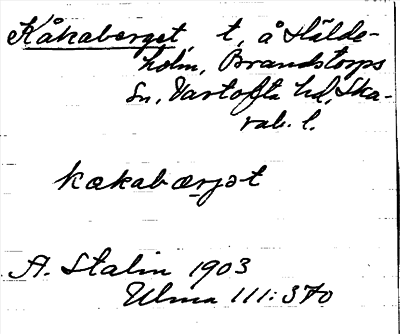 Kåkaberget, t, å Hälde-
holm, Brandstorps
sn, Vartofta hd, Ska-
rab. l.
kakabærjət
A. Stalin 1903
Ulma 111:370